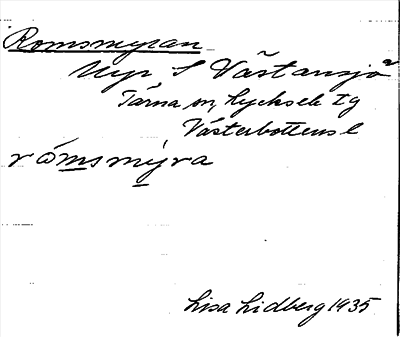 Romsmyran
Myr S Västansjö
Tärna sn, Lycksele tg
Västerbottens l
rómsmýra
Lisa Lidberg 1935